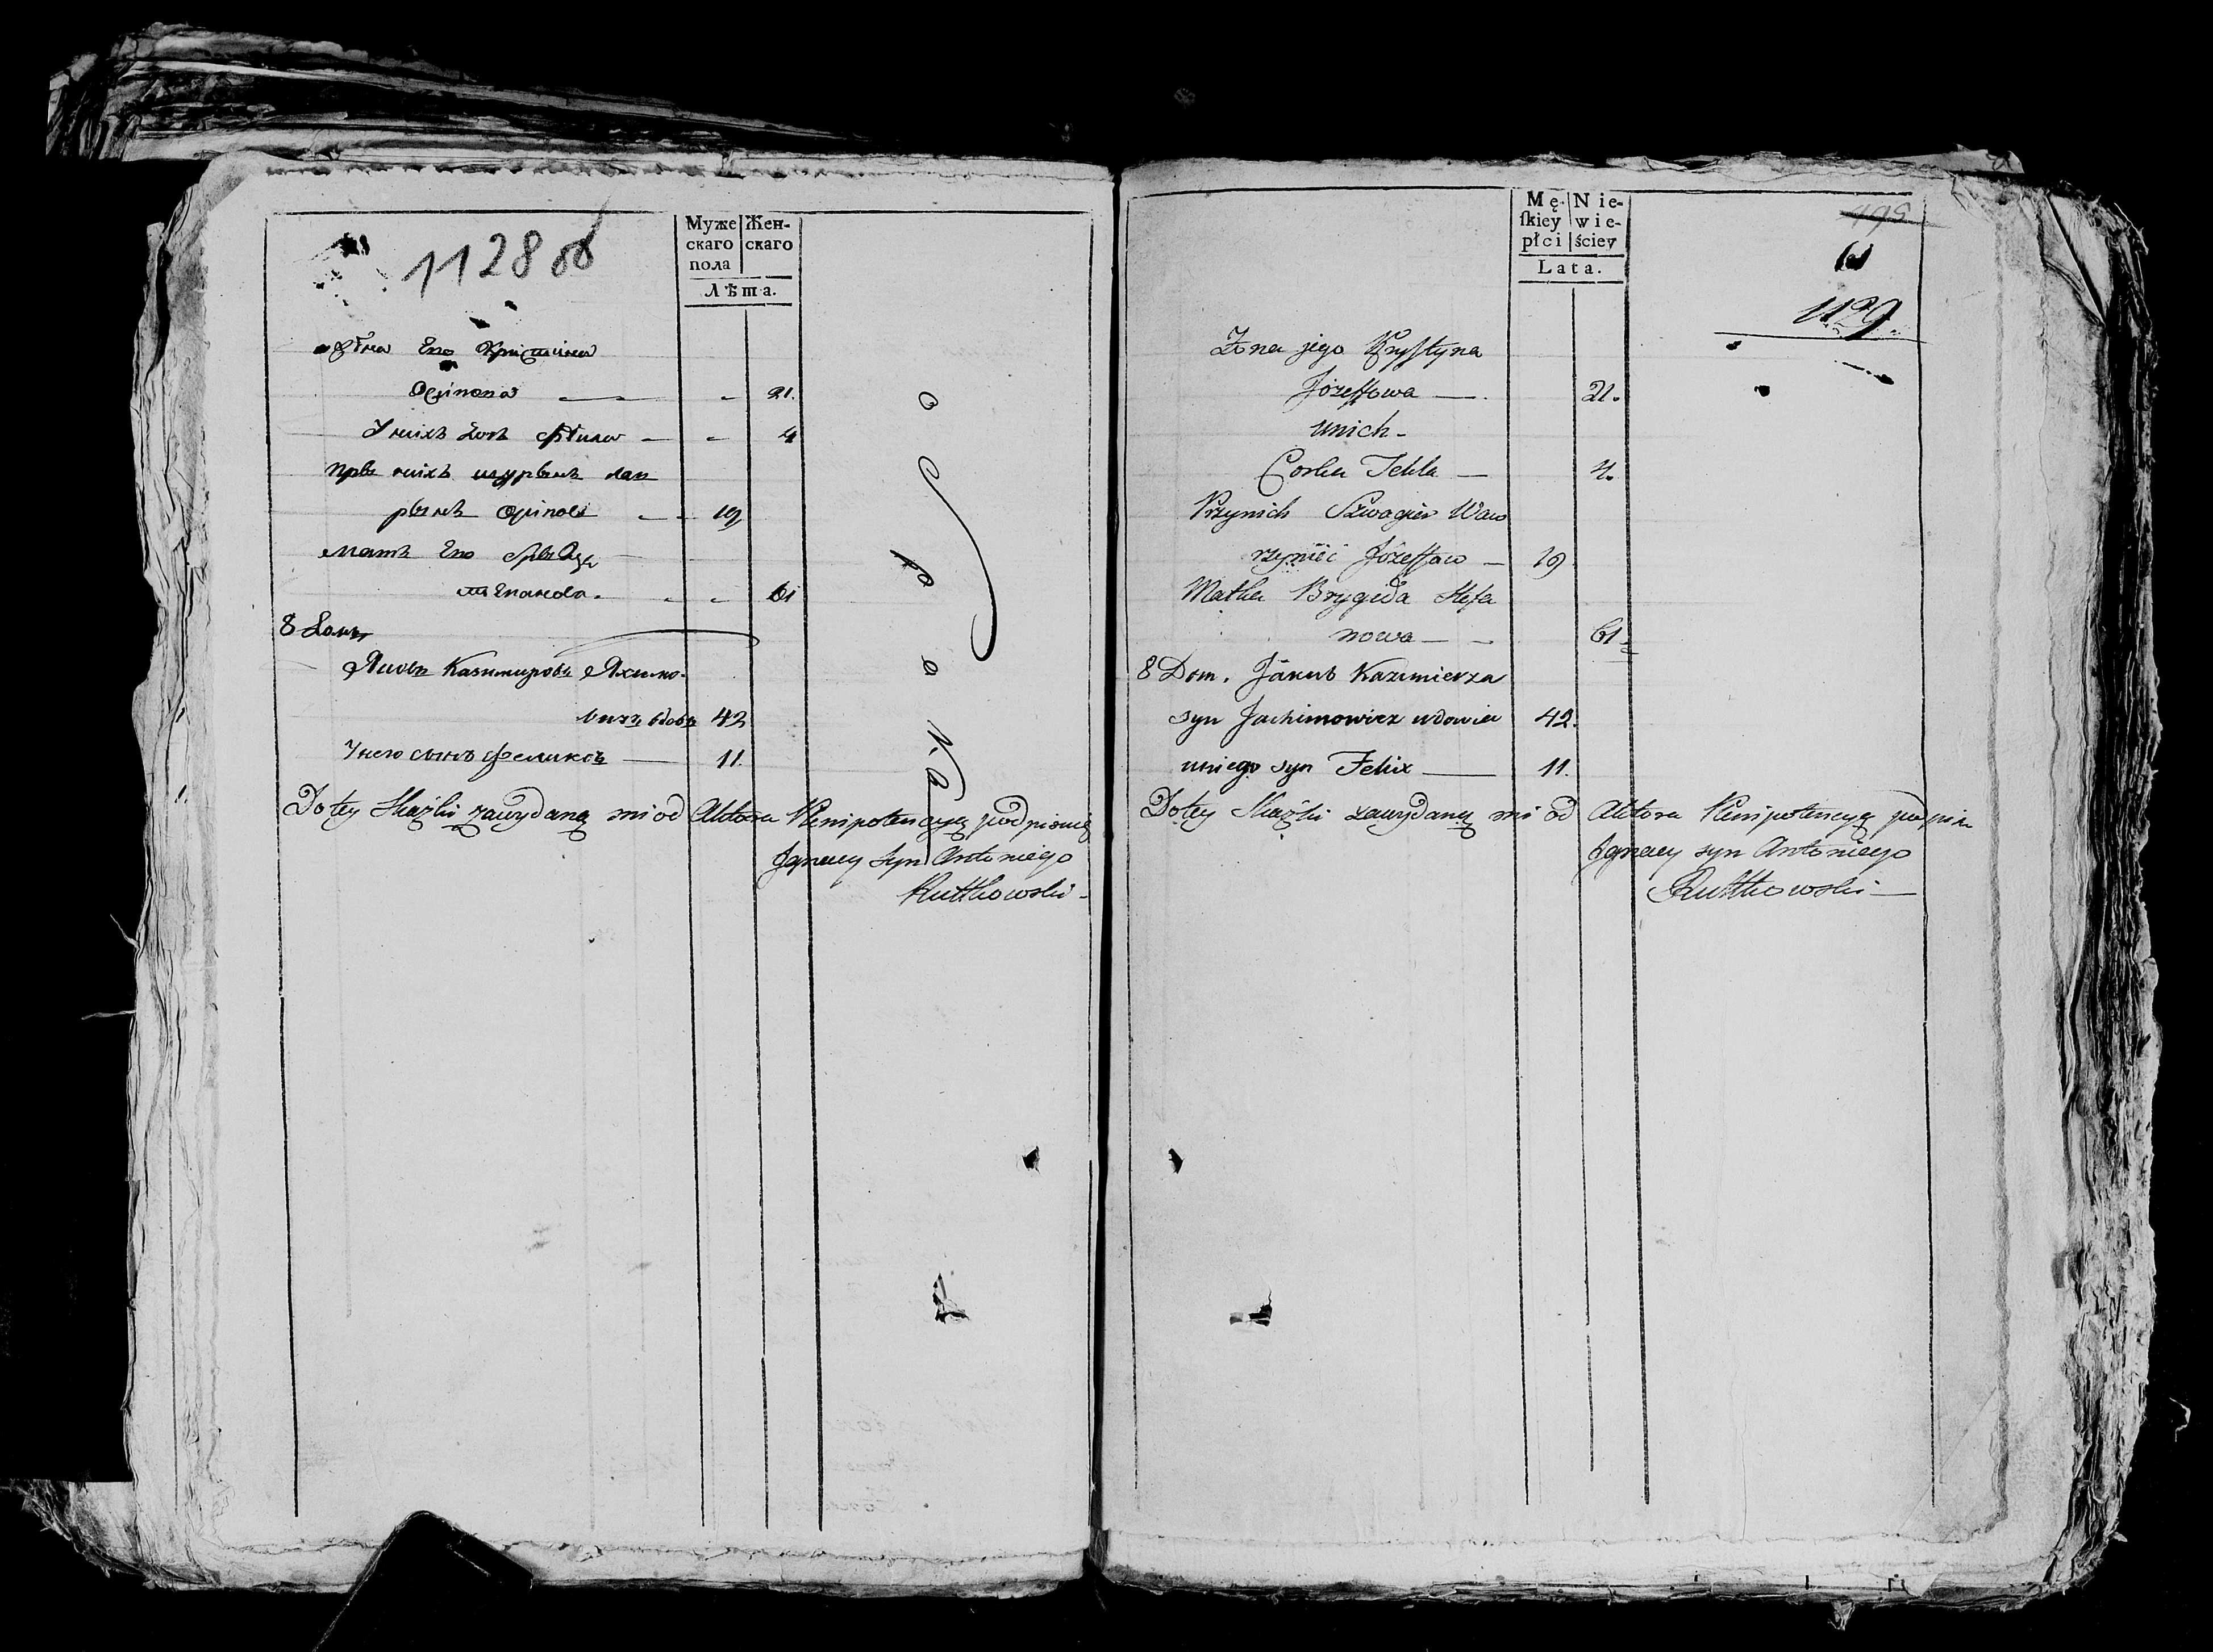 1128 об
Муже Жен-
скаго скаго
пола
Лѣта.
Жена Его Кристина
Осипова — 21.
У нихъ дочь Фекла — 4
При нихъ шуринъ Лав
рынъ Осиповъ — 19
Мать Его Бригида
Степанова — 61
8 Домъ
Яковъ Казимировъ Яхимо-
вичъ вдовъ 42
У него сынъ Феликсъ — 11.
Do tey Skazki zawydaną mi od Aktora Plenipotencyą podpisuię
Ignacy syn Antoniego
Ruttkowski -
Mę- Nie-
ſkiey wie-
płci ściey
Lata.
198
1129.
Zona jego Krystyna
Jozeffowa — 21.
unich -
Corka Tekla — 4.
Przynich Szwagier Waw
rzyniec Jozeffow — 19
Matka Brygida Stefa
nowa — 61
8 Dom. Jakub Kazimierza
syn Jachimowicz wdowiec 42.
uniego syn Felix — 11.
Do tey Skazki zawydaną mi od Aktora Plenipotencyą podpisu
Ignacy syn Antoniego
Ruttkowski —